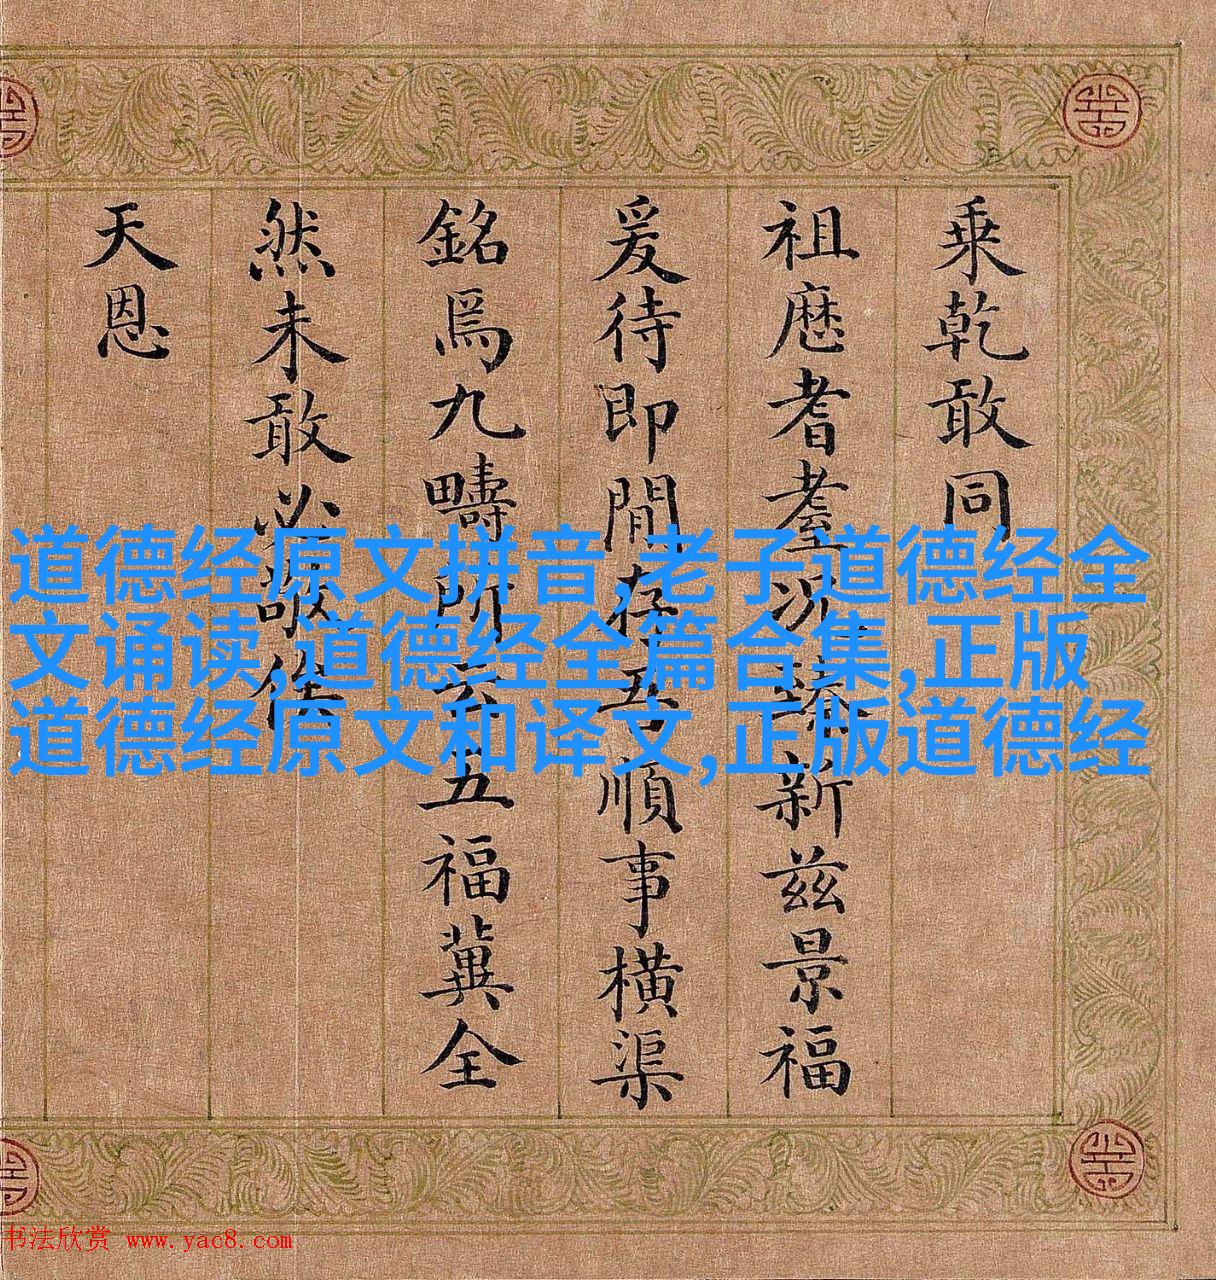 乗乾敢同
祖歷耆耋況臻新兹景福
爰待即間存吾順事橫渠
銘爲九疇所云五福冀全
然未敢必敬俟
天恩
道德经原文拼音,老子道德经全
文诵读,道德经全篇合集,正版
道德经原文和译文,正版道德经
书法欣赏 www.yac8.com